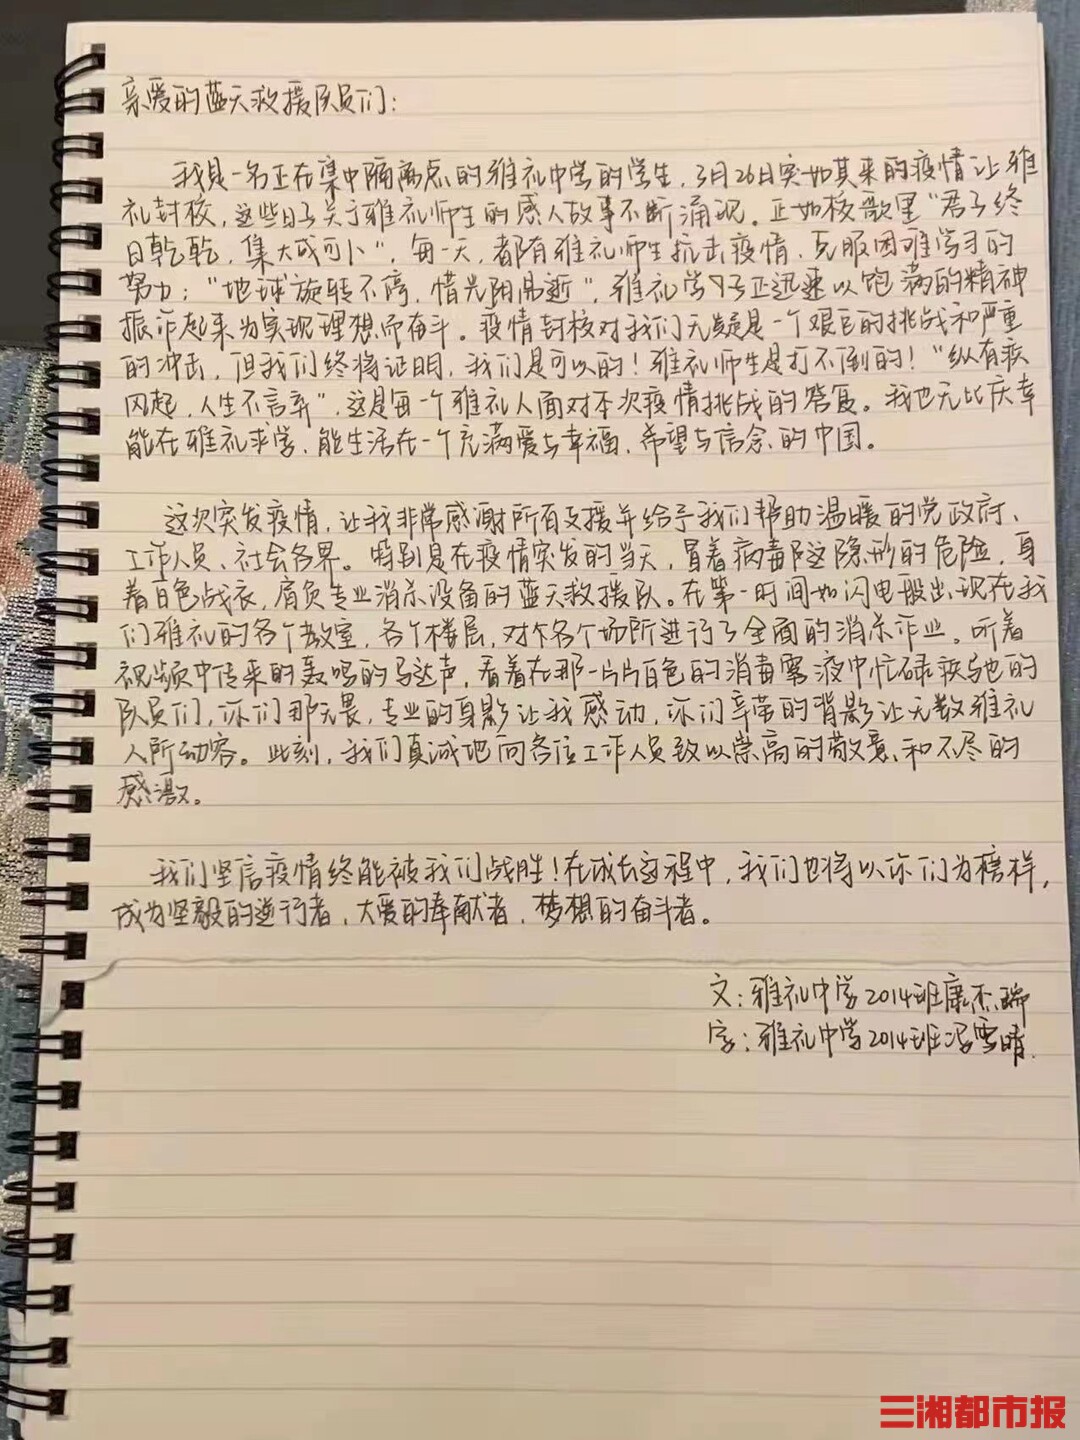 亲爱的蓝天救援队员们：
我是一名正在集中隔离点的雅礼中学的学生，3月26日突如其来的疫情让雅
礼封校，这些日子关于雅礼师生的感人故事不断涌现。正如校歌里“君子终
日乾乾，集大成可卜”，每一天，都有雅礼师生抗击疫情、克服困难学习的
努力；“地球旋转不停，惜光阴易逝”，雅礼学子正迅速以饱满的精神
振作起来为实现理想而奋斗。疫情封校对我们无疑是一个艰巨的挑战和严重
的冲击，但我们终将证明，我们是可以的！雅礼师生是打不倒的！“纵有疾
风起，人生不言弃”，这是每一个雅礼人面对本次疫情挑战的答复。我也无比庆幸
能在雅礼求学，能生活在一个充满爱与幸福、希望与信念的中国。
这次突发疫情，让我非常感谢所有支援并给予我们帮助温暖的党政府、
工作人员、社会各界。特别是在疫情突发的当天，冒着病毒这隐形的危险，身
着白色战衣，肩负专业消杀设备的蓝天救援队。在第一时间如闪电般出现在我
们雅礼的各个教室，各个楼层，对各个场所进行了全面的消杀作业。听着
视频中传来的轰鸣的马达声，看着在那一片片白色的消毒雾液中忙碌疾驰的
队员们，你们那无畏，专业的身影让我感动，你们辛劳的背影让无数雅礼
人所动容。此刻，我们真诚地向各位工作人员致以崇高的敬意和不尽的
感激。
我们坚信疫情终能被我们战胜！在成长过程中，我们也将以你们为榜样，
成为坚毅的逆行者，大爱的奉献者，梦想的奋斗者。
文：雅礼中学2014班康杰瑞
字：雅礼中学2014班冯雪晴.
三湘都市报